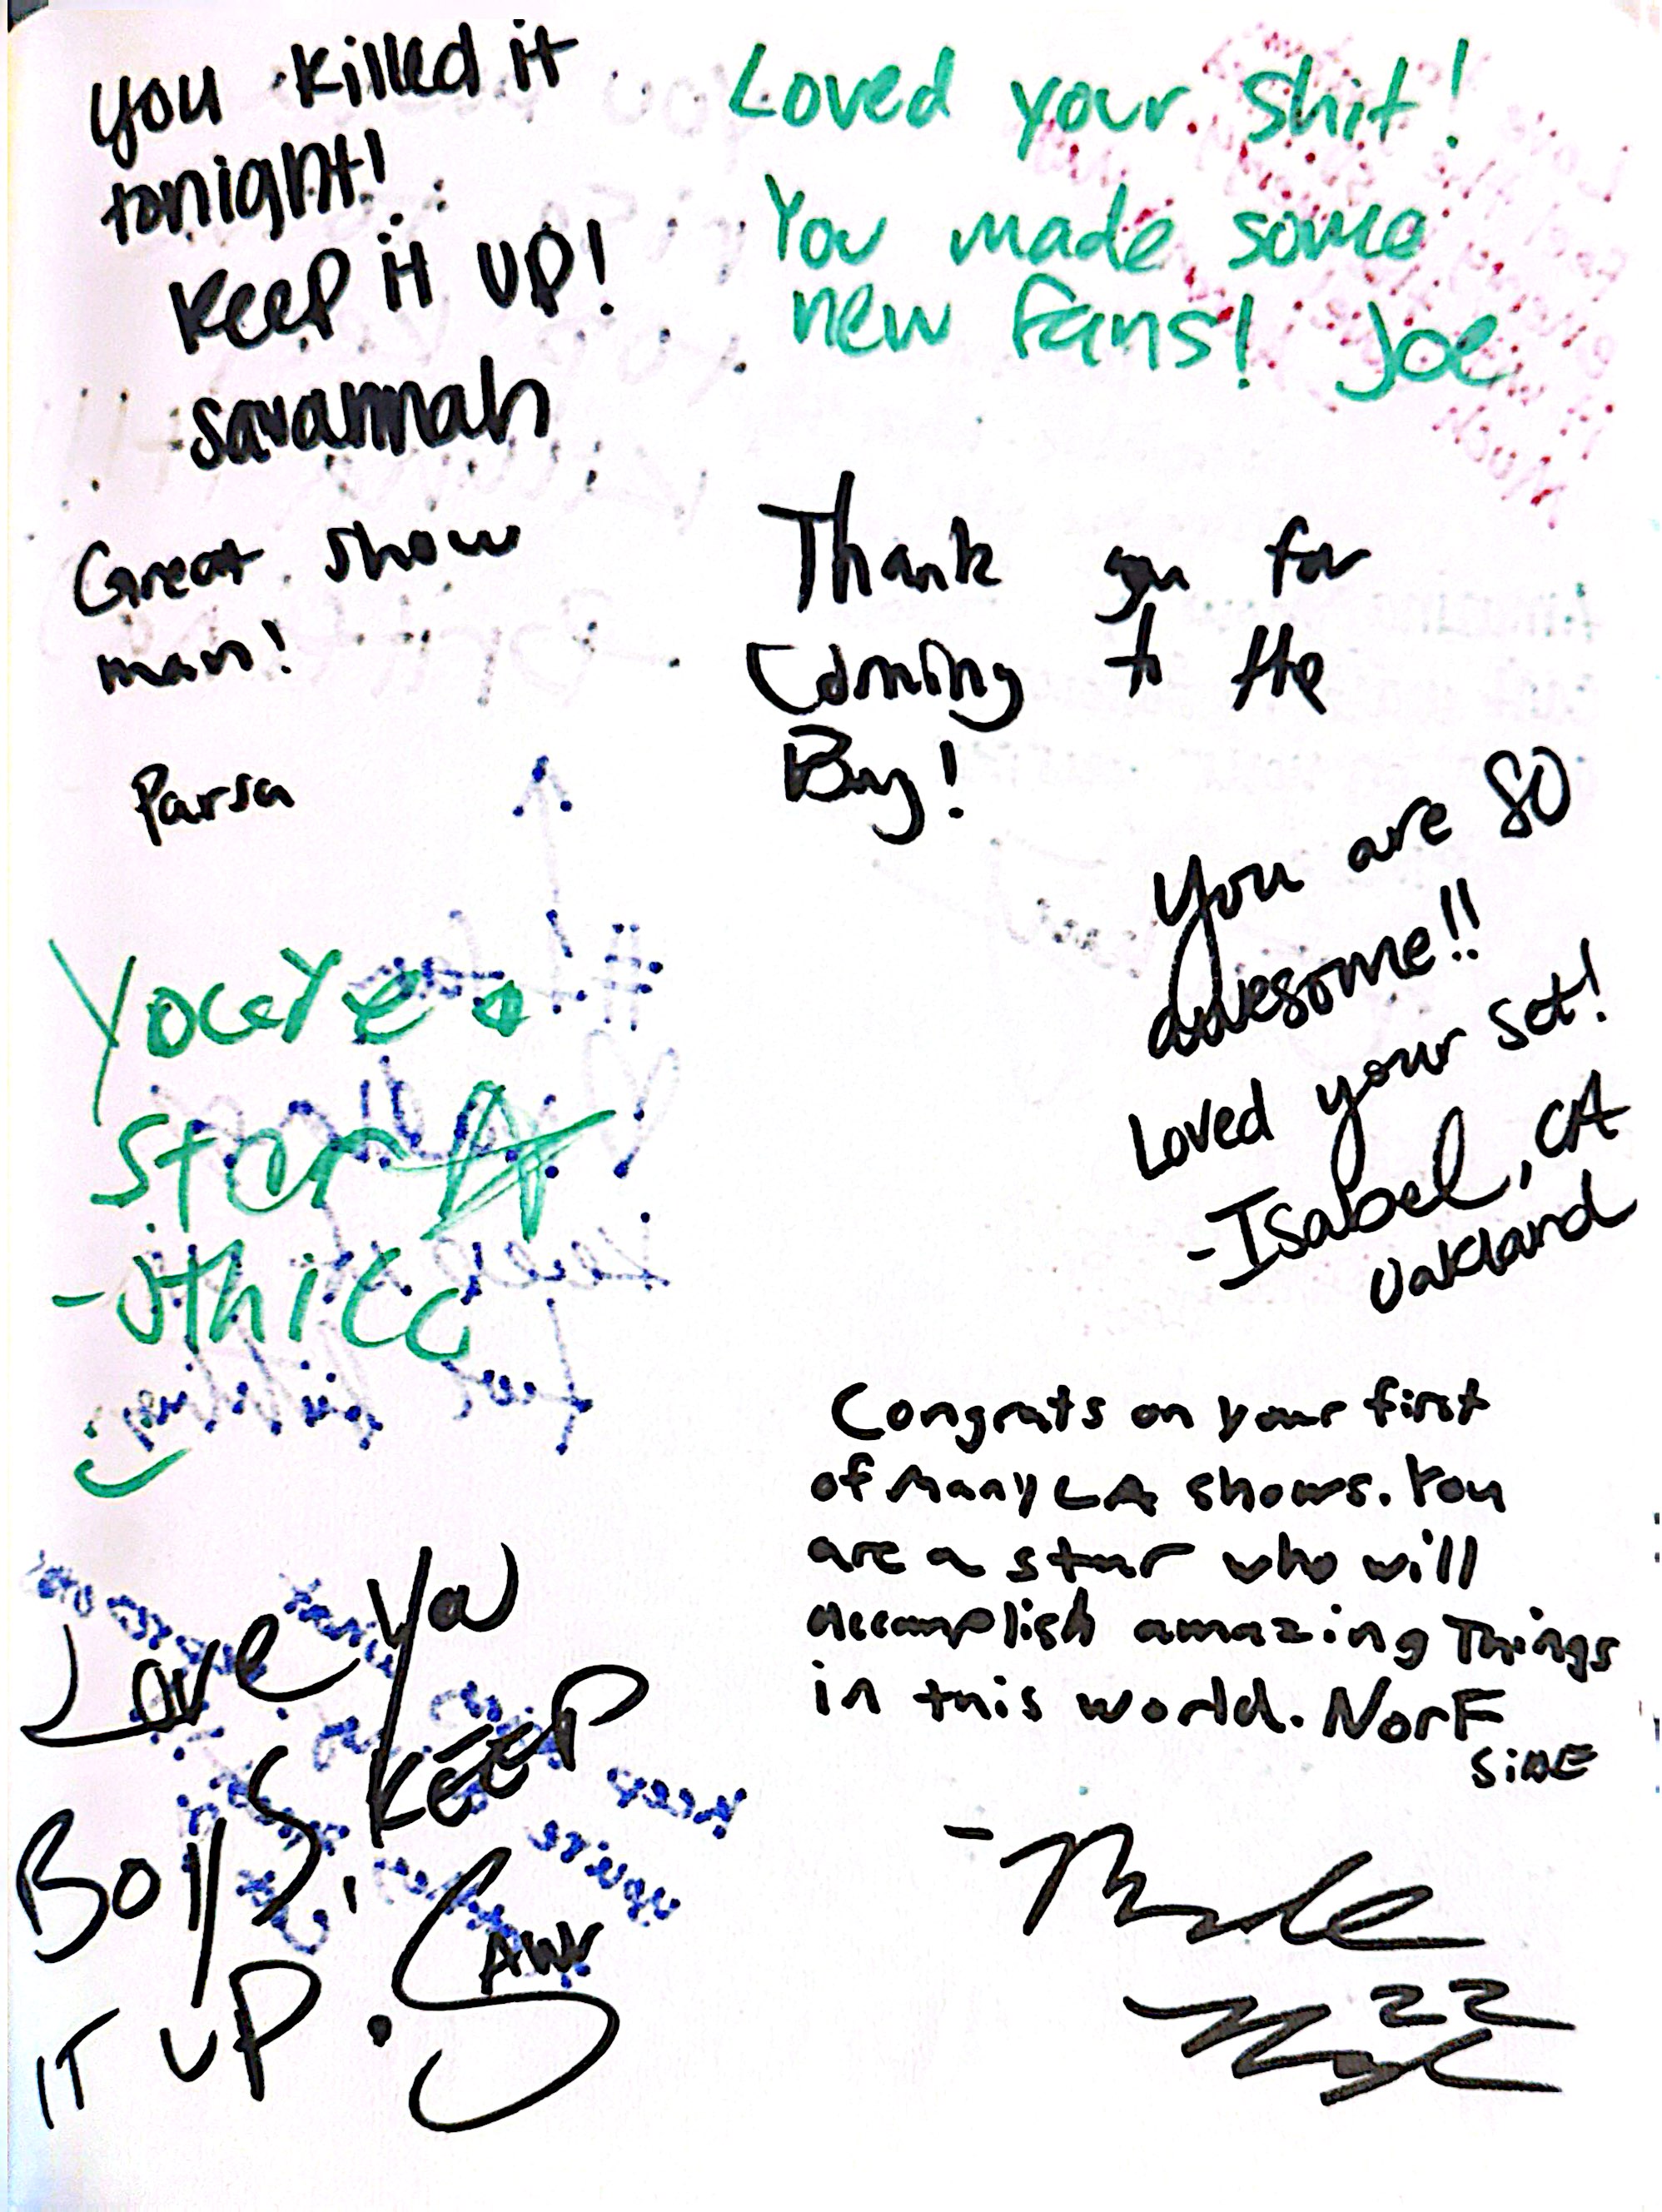 you killed it
tonight!
keep it up!
savannah
Loved your shit!
You made some
new fans! Joe
Great show
man!
Parsa
Thank you for
coming to the
Bay!
You are SO
awesome!!
Loved your set!
-Isabel, CA
Oakland
Youre a
star
-Jthicc
Congrats on your first
of many LA shows. You
are a star who will
accomplish amazing Things
in this world. NorF
SiDE
Love you
Boys, KEEP
IT UP.
22